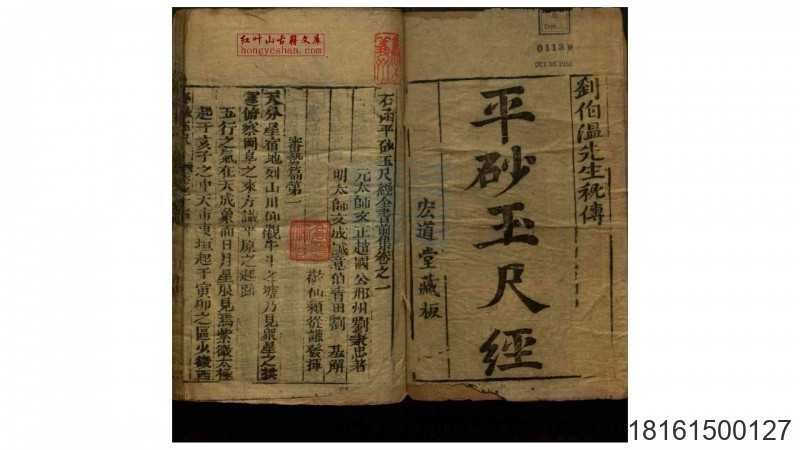 红叶山古籍文库
hongyeshan.com
01139
劉伯溫先生秘傳
平砂玉尺經
宏道堂藏板
石函平砂玉尺經全書前集卷之一
元太師文正趙國公邢州劉秉忠著
明太師文成誠意伯青田劉 基解
審勢篇第一
天分星宿地列山川仰觀牛斗之墟乃見眾星之拱
運俯察岡阜之來方識平原之起跡
五行之氣在天成象而日月星辰見焉紫微太極
起于亥子之中天市東垣起于寅卯之區
18161500127